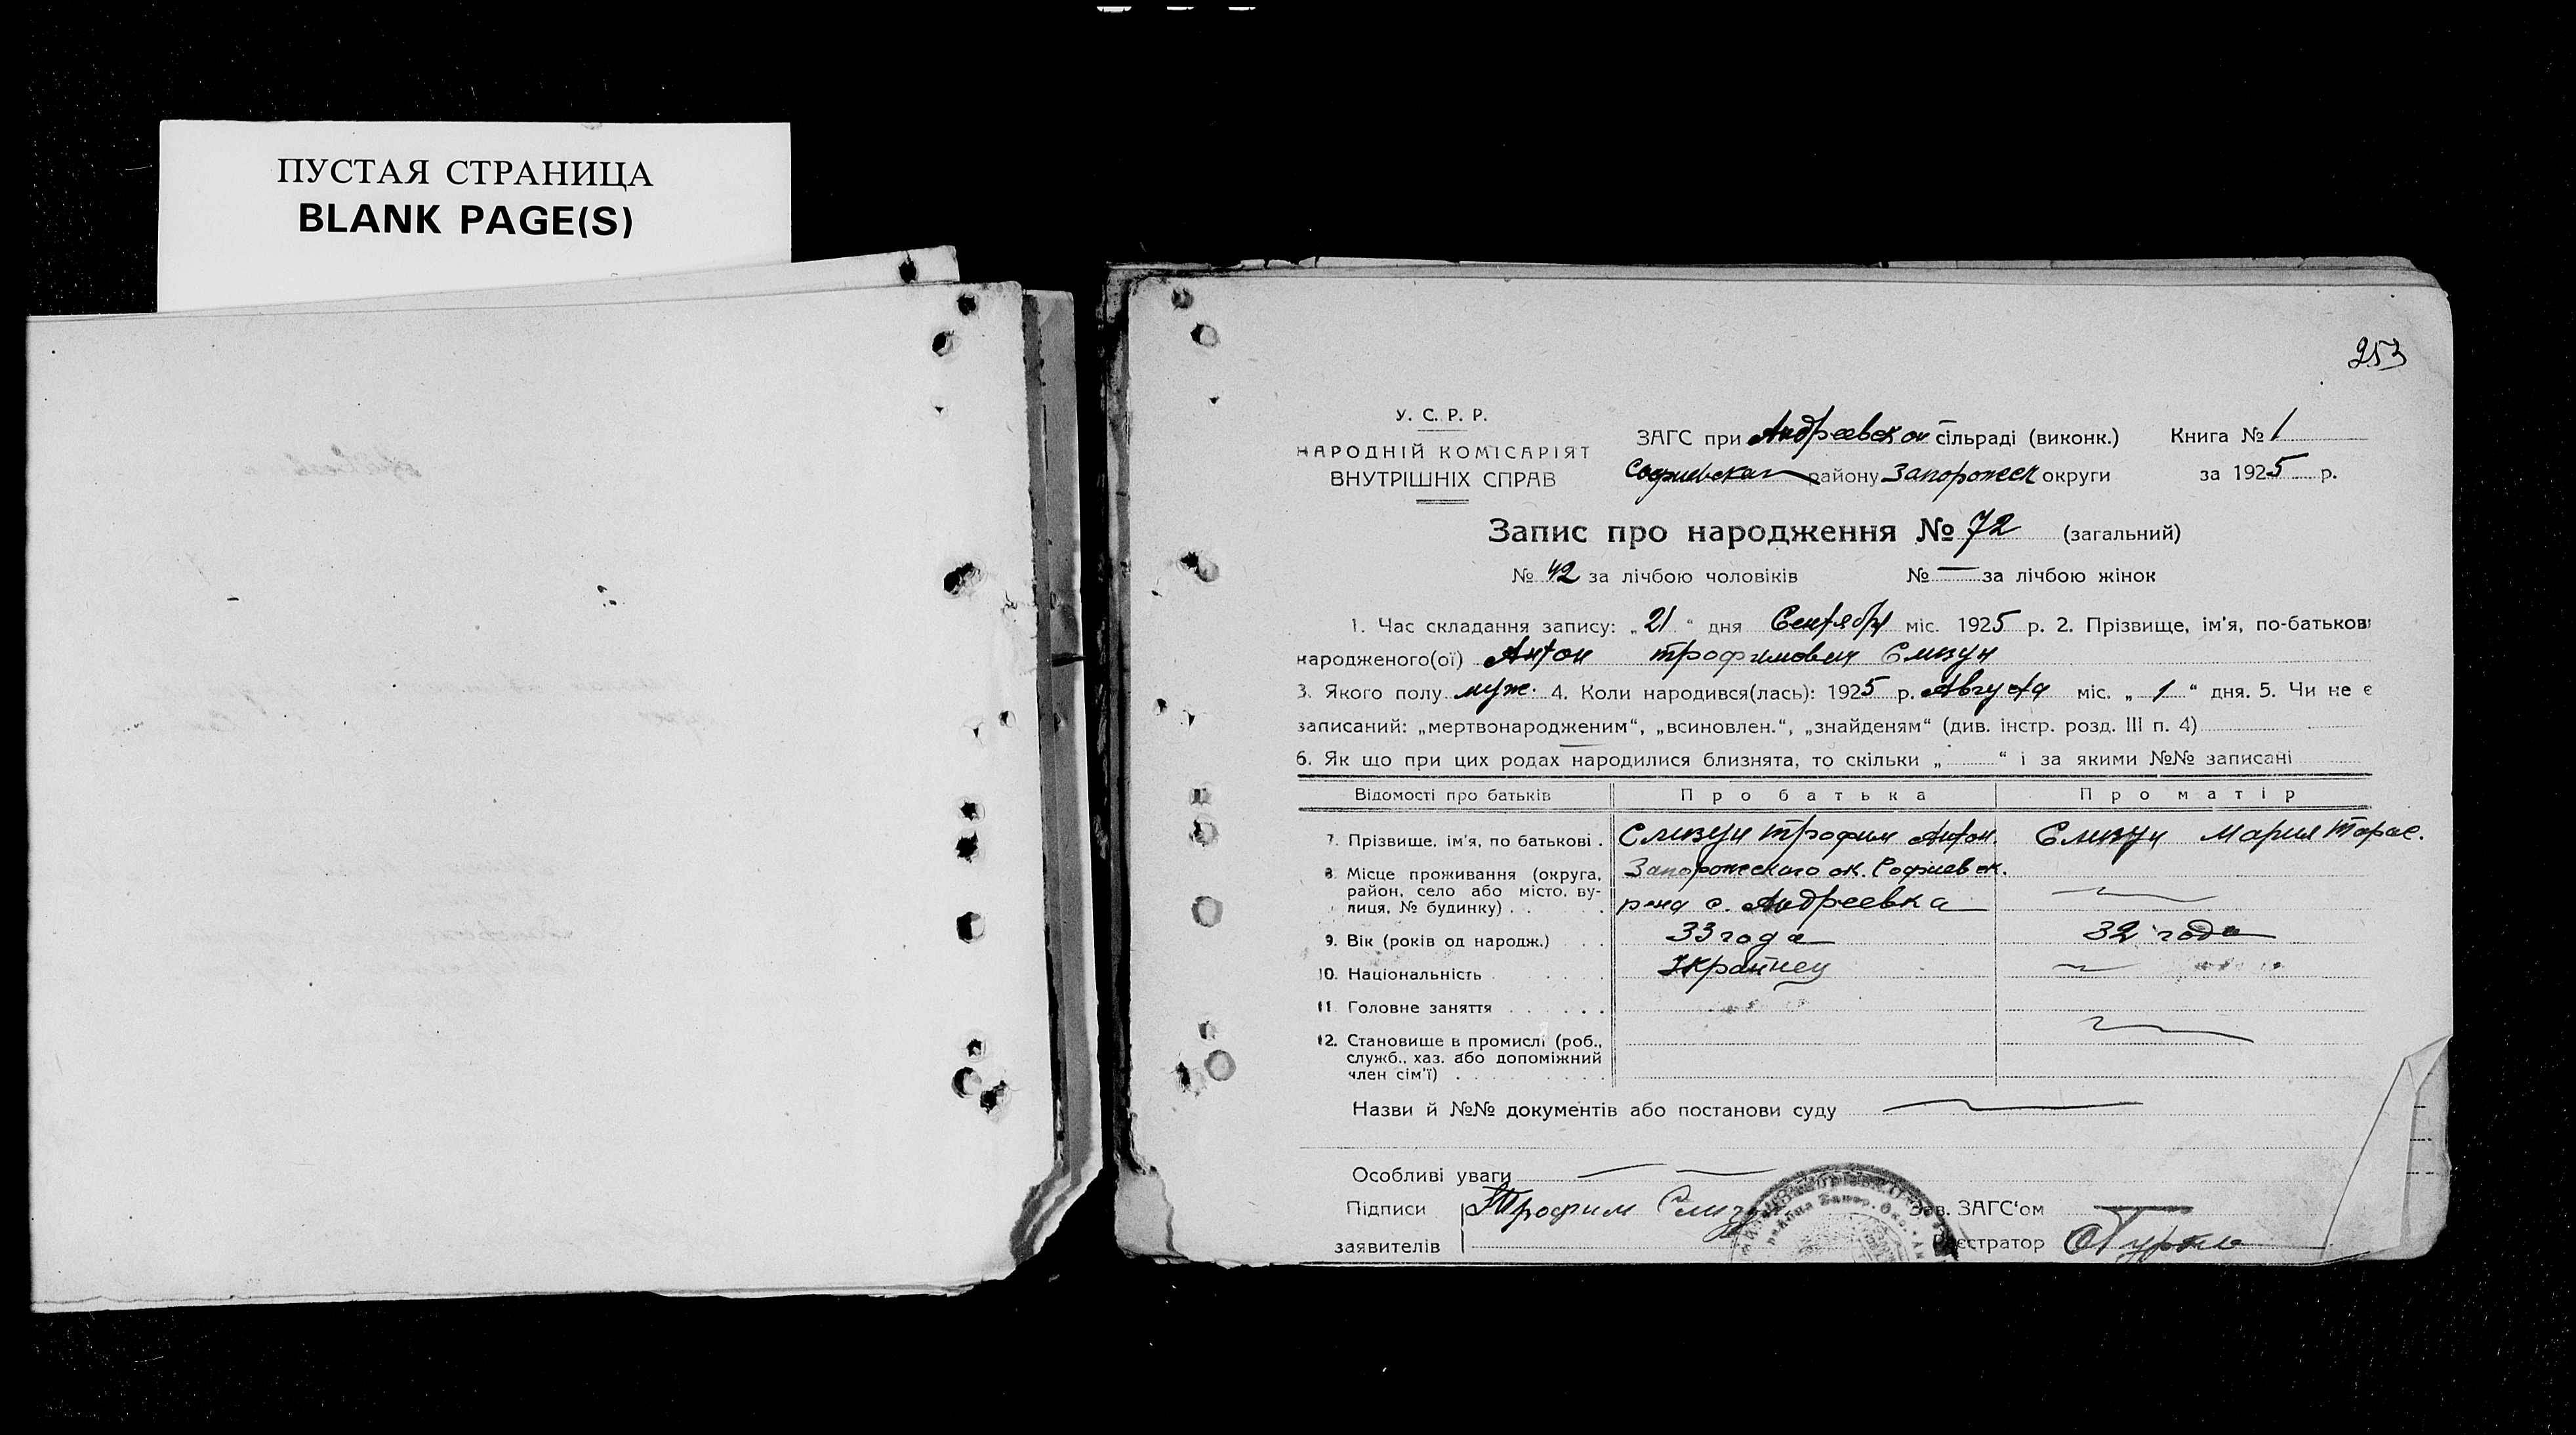 ПУСТАЯ СТРАНИЦА
BLANK PAGE(S)
253
У. С. Р. Р.
НАРОДНІЙ КОМІСАРІЯТ
ВНУТРІШНІХ СПРАВ
ЗАГС при Андреевской сільраді (виконк.) Книга № 1
Софиевская району Запорожск округи за 1925 р.
Запис про народження № 72 (загальний)
№ 42 за лічбою чоловіків № — за лічбою жінок
1. Час складання запису: „21“ дня Сентября міс. 1925 р. 2. Прізвище, ім'я, по-батькові
народженого(ої) Антон Трофимович Слизун
3. Якого полу муж. 4. Коли народився(лась): 1925 р. Августа міс. „1“ дня. 5. Чи не є
записаний: „мертвонародженим“, „всиновлен.“, „знайденям“ (див. інстр. розд. III п. 4)
6. Як що при цих родах народилися близнята, то скільки „ “ і за якими №№ записані
Відомості про батьків Про батька Про матір
7. Прізвище, ім'я, по батькові . Слизун Трофим Антон. Слизун Мария Тарас.
8. Місце проживання (округа, Запорожскаго ок. Софиевск.
район, село або місто, ву-
лиця, № будинку) . . . р-на с. Андреевка
9. Вік (років од народж.) . . 33 года 32 года
10. Національність . . . . Украинец
11. Головне заняття . . . . .
12. Становище в промислі (роб.,
служб., хаз. або допоміжний
член сім'ї) . . . . . . . .
Назви й №№ документів або постанови суду
Особливі уваги
Підписи Трофим Слизун Зав. ЗАГС'ом
заявителів Реєстратор